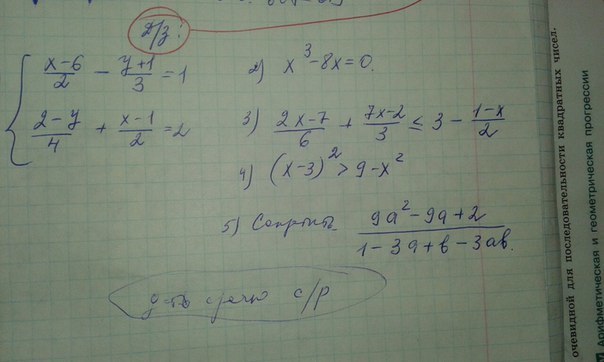 Д/з:
{ (x-6)/2 - (y+1)/3 = 1
(2-y)/4 + (x-1)/2 = 2
2) x³-8x=0.
3) (2x-7)/6 + (7x-2)/3 ≤ 3 - (1-x)/2
4) (x-3)² > 9-x²
5) Сократить (9a²-9a+2)/(1-3a+b-3ab.)
с/р
очевидной для последовательности квадратных чисел.
Арифметическая и геометрическая прогрессии